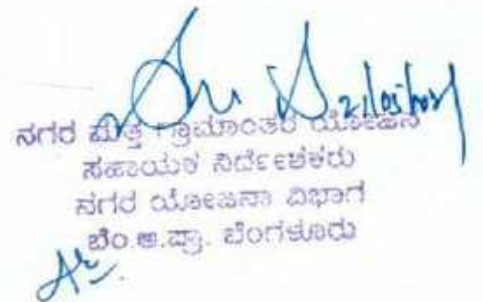 ನಗರ ಮತ್ತು ಗ್ರಾಮಾಂತರ ಯೋಜನೆ
ಸಹಾಯಕ ನಿರ್ದೇಶಕರು
ನಗರ ಯೋಜನಾ ವಿಭಾಗ
ಬೆಂ.ಅ.ಪ್ರಾ. ಬೆಂಗಳೂರು